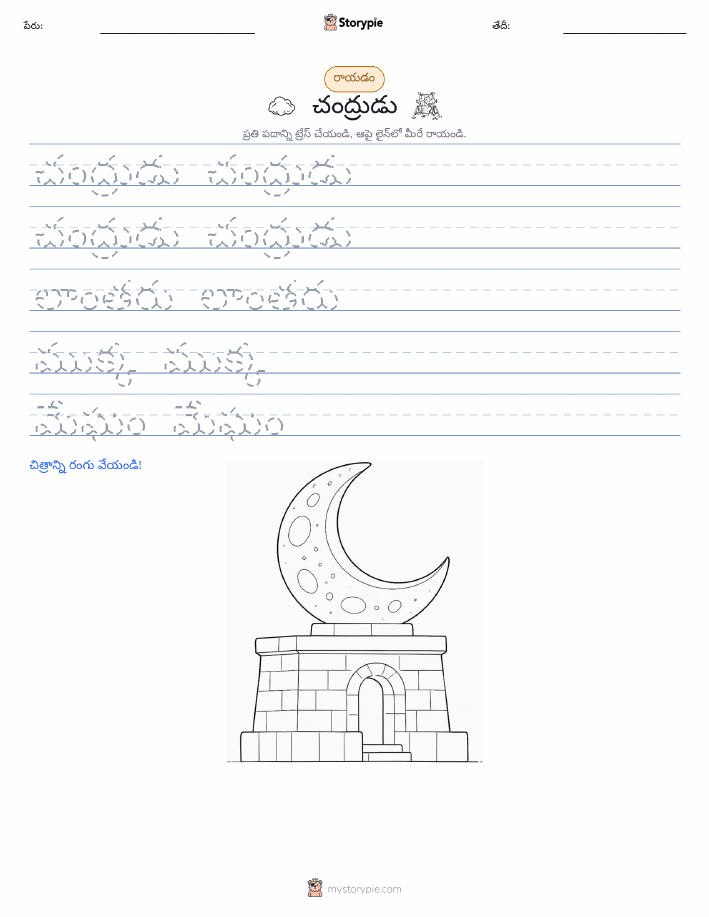 పేరు:
Storypie
తేదీ:
రాయడం
చంద్రుడు
ప్రతి పదాన్ని ట్రేస్ చేయండి, ఆపై లైన్‌లో మీరే రాయండి.
చంద్రుడు చంద్రుడు
చంద్రుడు చంద్రుడు
లాంతరు లాంతరు
ముక్క ముక్క
మేఘం మేఘం
చిత్రాన్ని రంగు వేయండి!
mystorypie.com